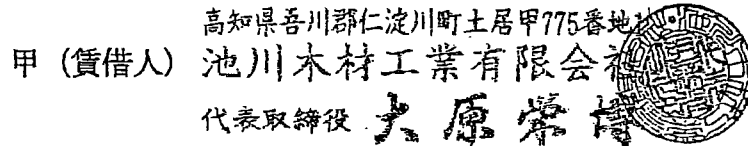 高知県吾川郡仁淀川町土居甲775番地
甲（賃借人） 池川木材工業有限会社
代表取締役 大原栄博